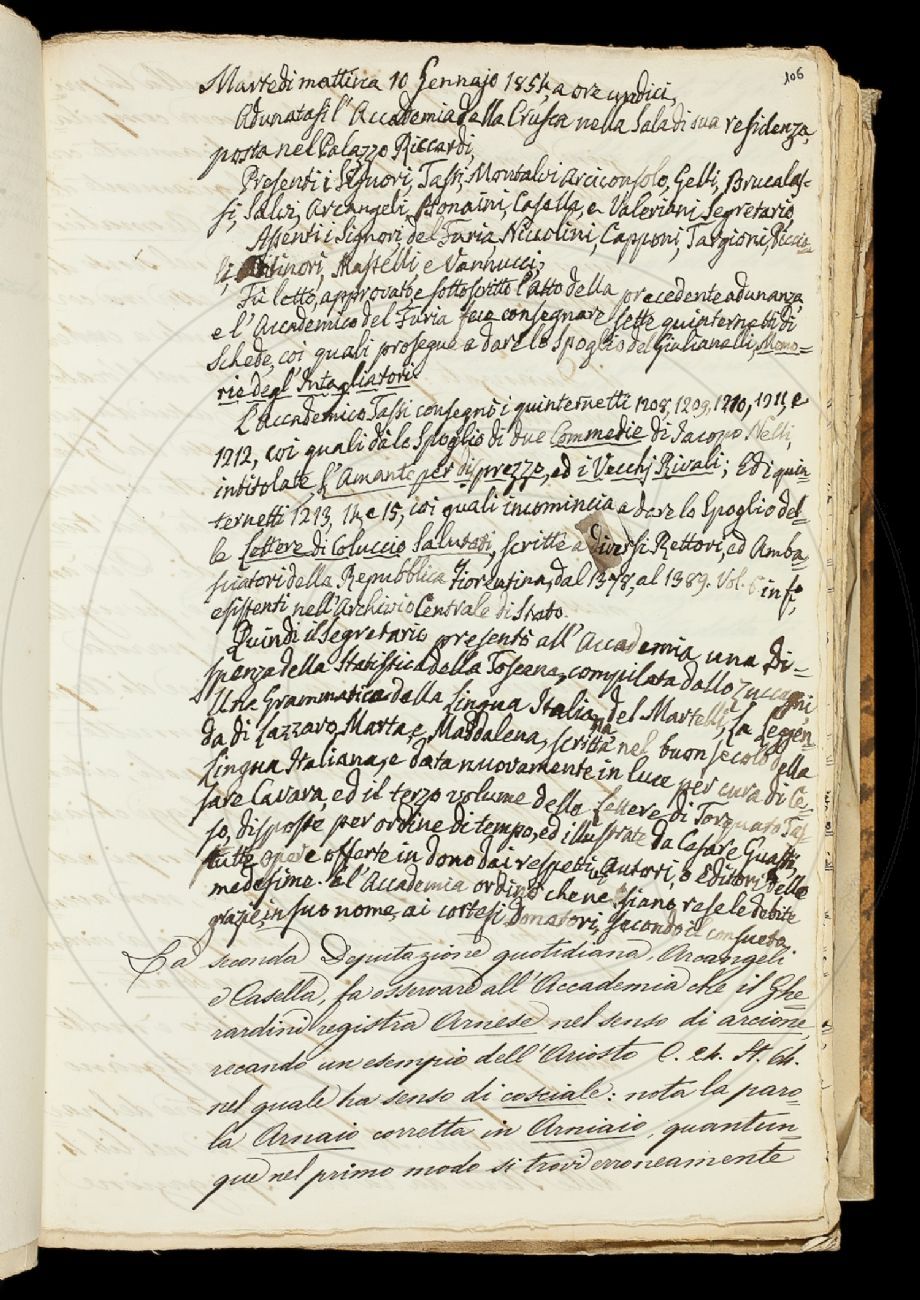 106
Martedi mattina 10 Gennajo 1854 a ore undici,
Adunatasi l'Accademia della Crusca nella Sala di sua residenza,
posta nel Palazzo Riccardi,
Presenti i Signori, Tassi, Montalvi Arciconsolo, Gelli, Brucalas-
si, Salvi, Arcangeli, Bonaini, Casella, e Valeriani Segretario,
Assenti i Signori, del Furia Niccolini, Capponi, Targioni, Riccio-
li, Minori, Mastelli e Vannucci,
Fù letto, approvato e sottoscritto l'atto della precedente adunanza,
e l'Accademico del Furia fece consegnare sette quinternetti di
Schede, coi quali prosegue a dare lo Spoglio del Giulianelli, Memo=
rie degl'Intagliatori.
L'accademico Tassi consegnò i quinternetti 1208, 1209, 1210, 1211, e
1212, coi quali dà lo Spoglio di due Commedie di Jacopo Nelli,
intitolate l'Amante per disprezzo, ed i Vecchj Rivali; Ed i quin-
ternetti 1213, 14, e 15, coi quali incomincia a dare lo Spoglio del-
le Lettere di Coluccio Salutati, scritte a diversi Rettori, ed Amba-
sciatori della Repubblica Fiorentina, dal 1378, al 1389. Vol. 6 in f.º,
esistenti nell'Archivio Centrale di Stato.
Quindi il Segretario presentò all'Accademia una Di-
spenza della Statistica della Toscana, compilata dallo Zuccagni
Una Grammatica della Lingua Italiana del Martelli, La Leggen-
da di Lazzaro, Marta e Maddalena, scritta nel buon secolo della
Lingua Italiana, e data nuovamente in luce per cura di Ce-
sare Cavara, ed il terzo volume delle Lettere di Torquato Tas-
so, disposte per ordine di tempo, ed illustrate da Cesare Guasti,
tutte opere offerte in dono dai respettivi autori, o Editori delle
medesime. E l'Accademia ordinò che ne siano rese le debite
grazie, in suo nome, ai cortesi Donatori, secondo il consueto.
La seconda Deputazione quotidiana, Arcangeli
e Casella, fa osservare all'Accademia che il Ghe=
rardini registra Arnese nel senso di arcione,
recando un esempio dell'Ariosto C. 24. St. 64.
nel quale ha senso di cosciale: nota la paro=
la Arnaio corretta in Arniaio, quantun=
que nel primo modo si trovi erroneamente